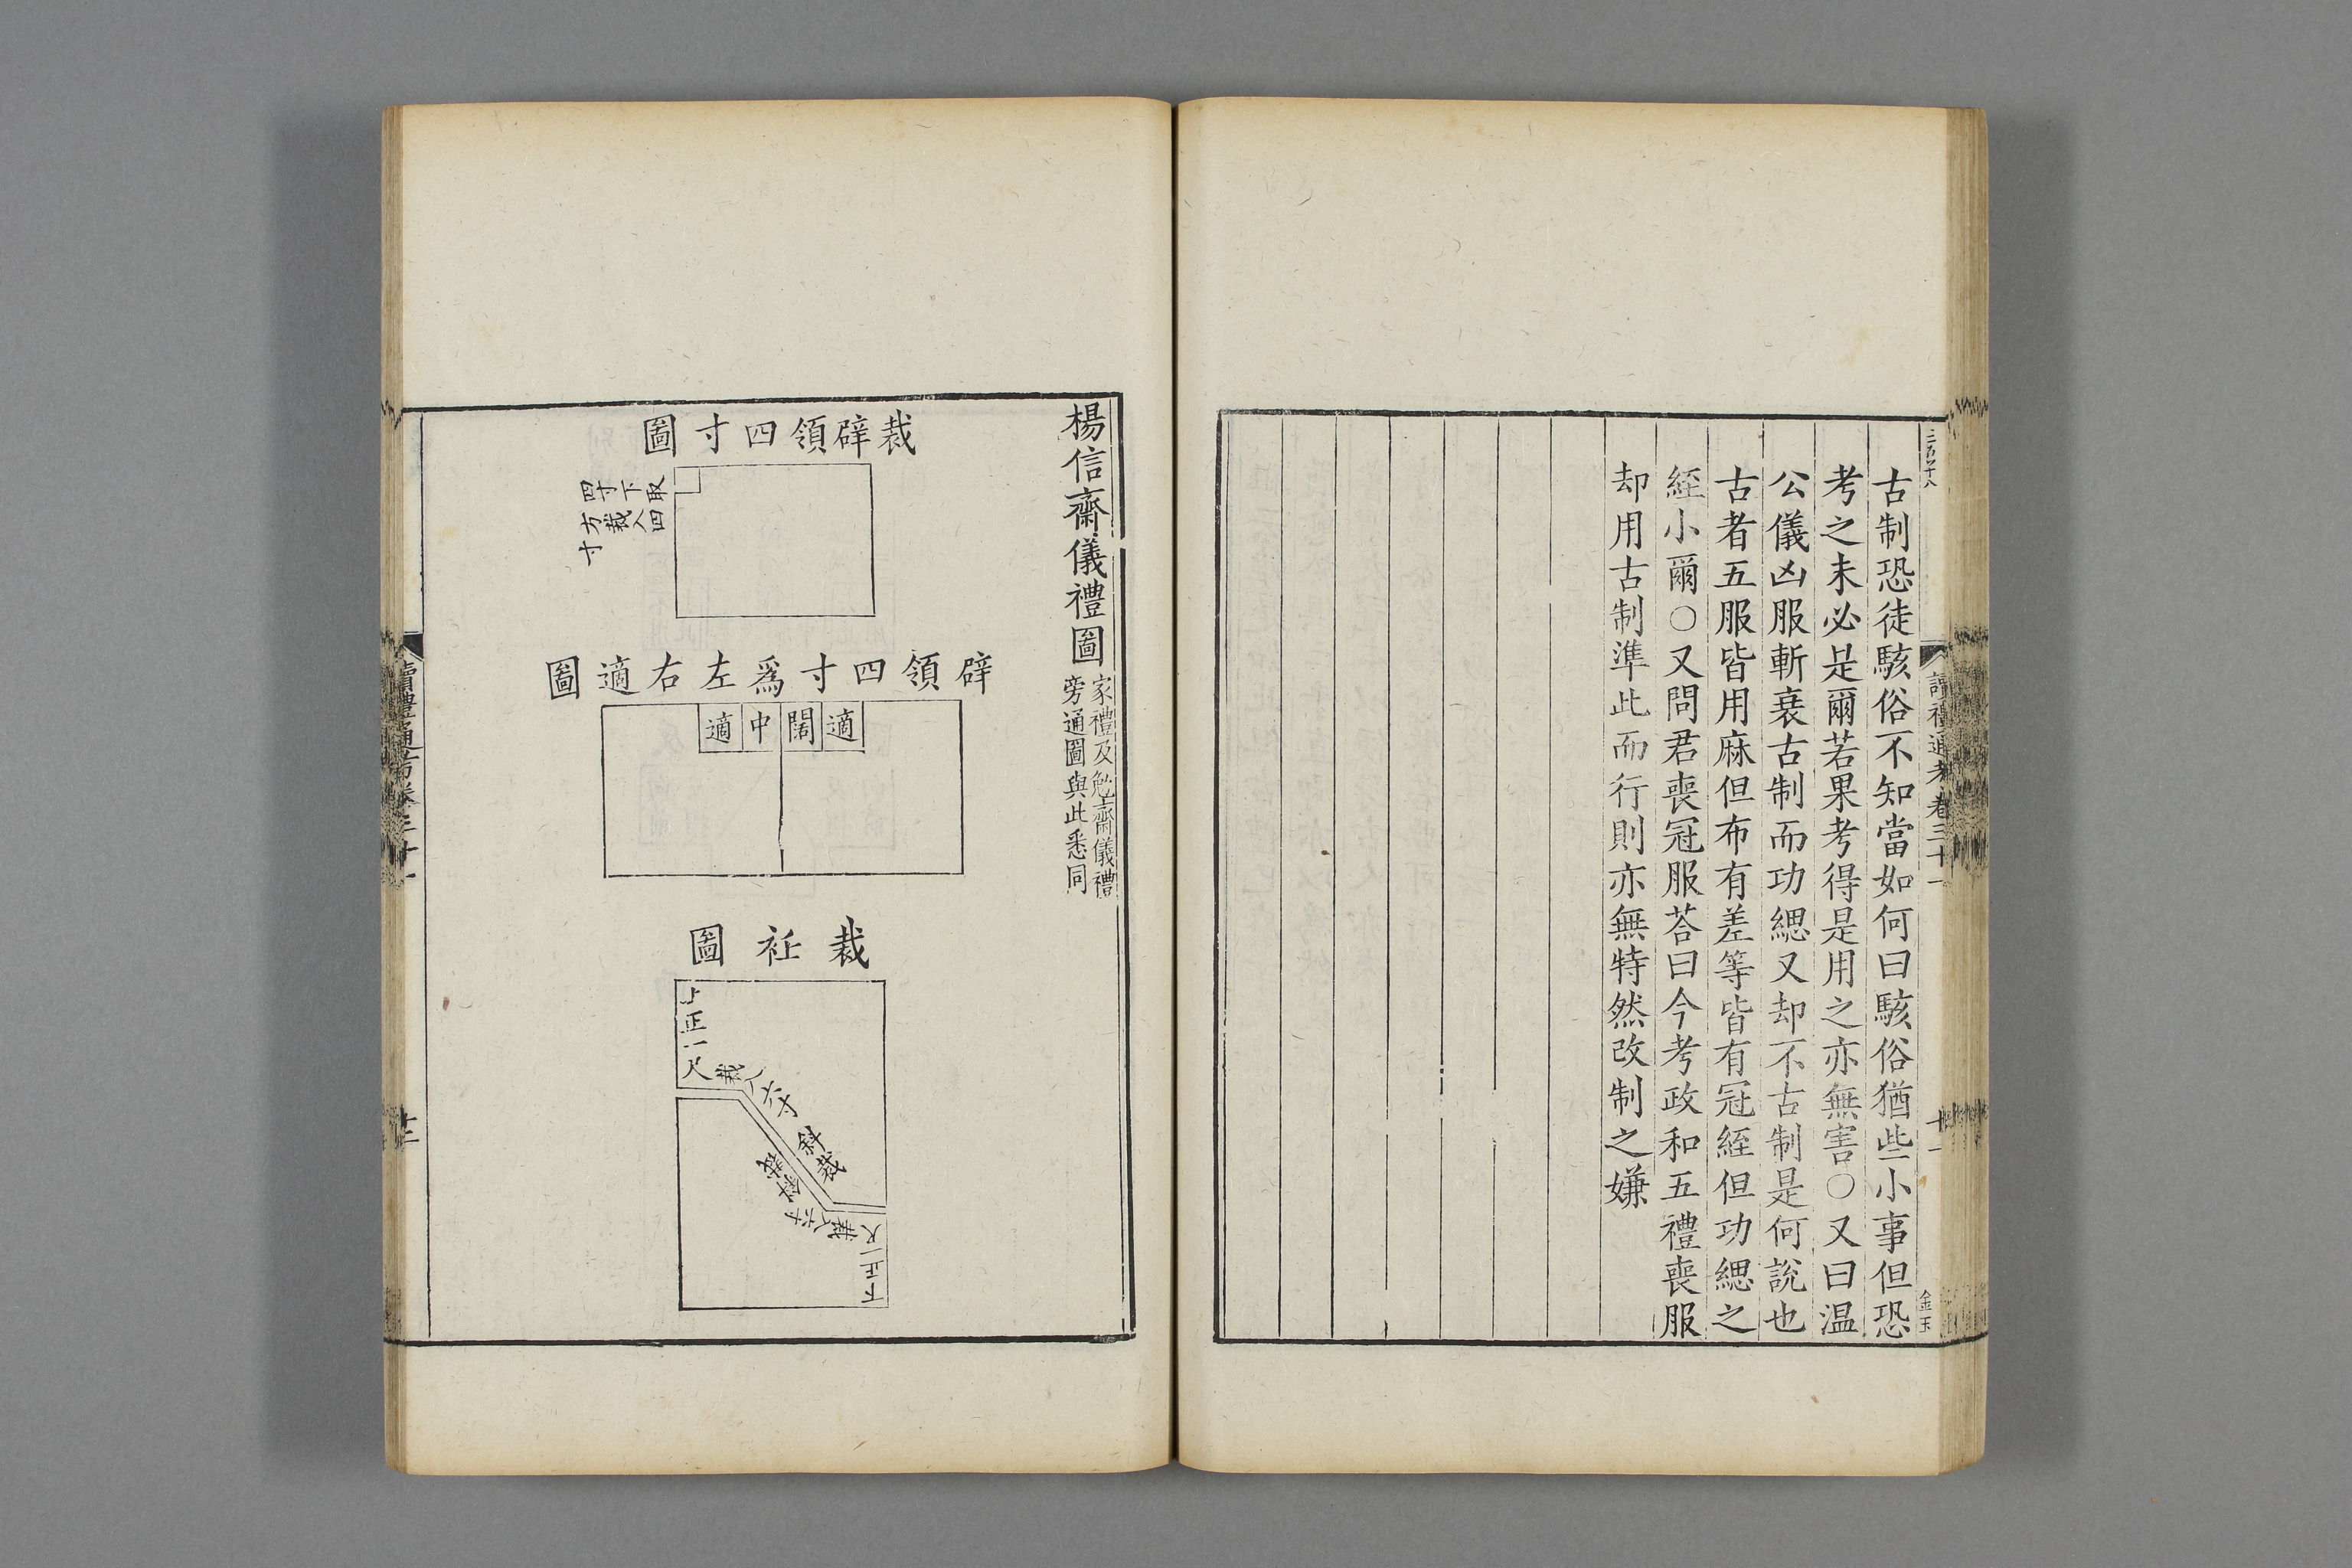 古制恐徒駭俗不知當如何曰駭俗猶些小事但恐
考之未必是爾若果考得是用之亦無害○又曰温
公儀凶服斬衰古制而功緦又却不古制是何說也
古者五服皆用麻但布有差等皆有冠絰但功緦之
絰小爾○又問君喪冠服荅曰今考政和五禮喪服
却用古制準此而行則亦無特然改制之嫌
讀禮通考卷三十一
十一
金玉
楊信齋儀禮圖
家禮及勉齋儀禮
旁通圖與此悉同
裁辟領四寸圖
取四
下入
寸裁
四方寸
辟領四寸爲左右適圖
適
闊
中
適
裁衽圖
上正一尺
裁入六寸
斜裁
斜裁
裁入六寸
下正一尺
讀禮通考卷三十一
十二